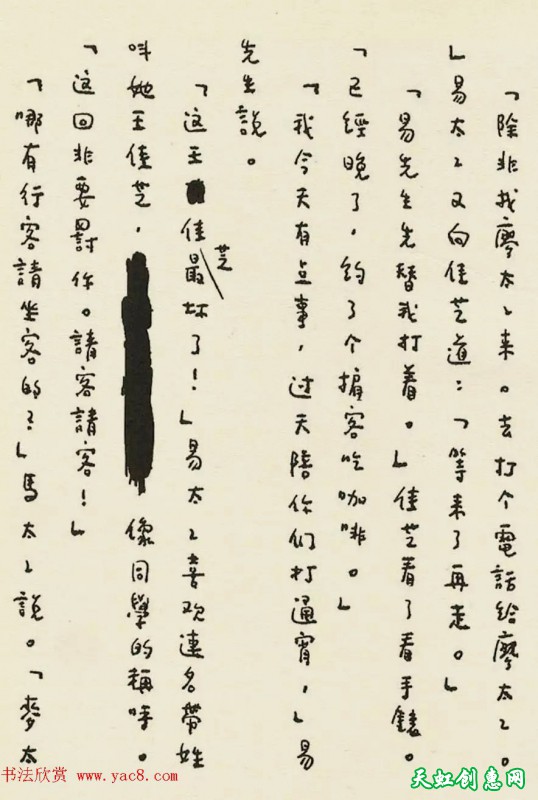 「除非找廖太〻来。去打个電話給廖太〻。
」易太〻又向佳芝道：「等来了再走。」
「易先生先替我打着。」佳芝看了看手錶。
「已經晚了，約了个掮客吃咖啡。」
「我今天有点事，过天陪你们打通宵，」易
先生說。
「这王佳芝最坏了！」易太〻喜欢連名帶姓
叫她王佳芝，像同學的稱呼。
「这回非要罰你。請客請客！」
「哪有行客請坐客的？」馬太〻說。「麥太
书法欣赏 www.yac8.com
天虹创惠网